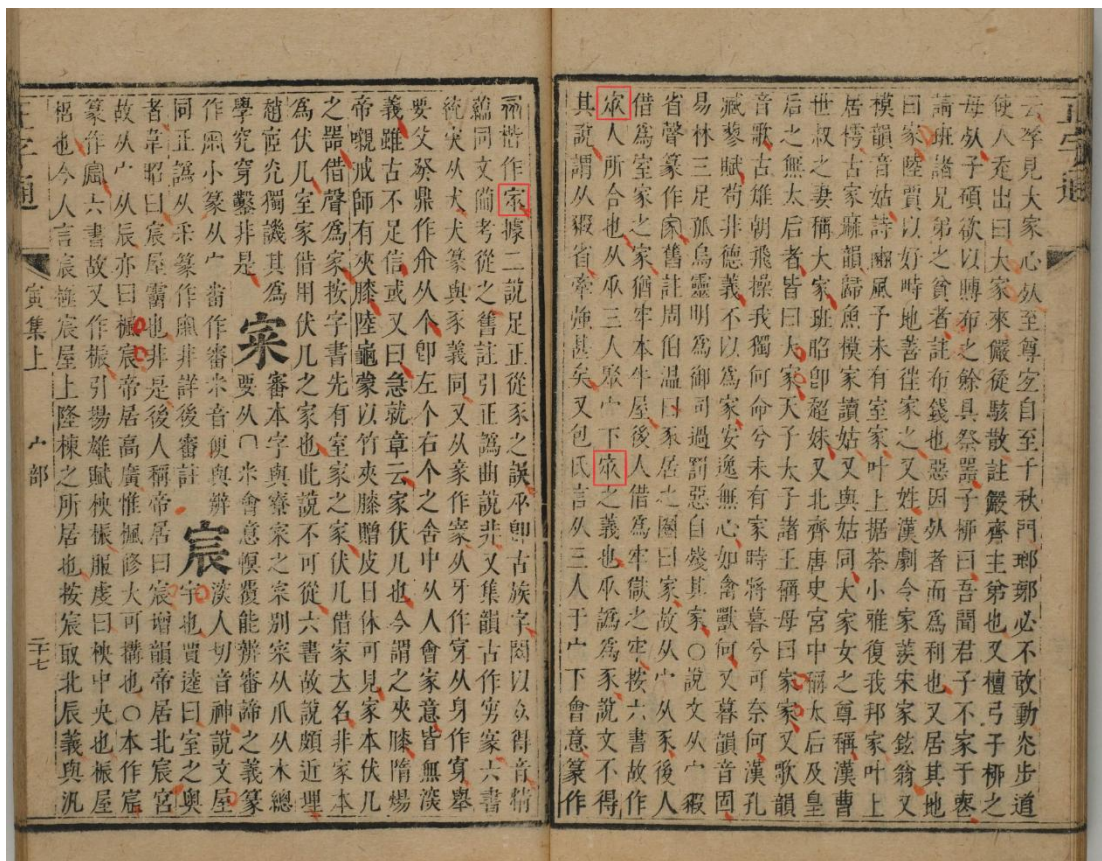 正字通
云琴見大家心死至尊安自至千秋門瑯琊必不敢動步道
使人走出曰大家來儼從駭散註儼齊主第也又檀弓子柳之
母死子碩欲以賻布之餘具祭器子柳曰吾聞君子不家于喪
請班諸兄弟之貧者註布錢也惡因死者而爲利也又居其地
曰家陸賈以好畤地善徃家之又姓漢劇令家羨宋家鉉翁又
模韻音姑詩豳風予未有室家叶上据荼小雅復我邦家叶上
居樗古家麻韻歸魚模家讀姑又與姑同大家女之尊稱漢曹
世叔之妻稱大家班昭卽超妹又北齊唐史宮中稱太后及皇
后之無太后者皆曰大家天子太子諸王稱母曰家家又歌韻
音歌古雉朝飛操我獨何命兮未有家時將暮兮可奈何漢孔
臧蓼賦苟非德義不以爲家安逸無心如禽獸何又暮韻音固
易林三足孤烏靈明爲御司過罰惡自殘其家○說文从宀豭
省聲篆作家舊註周伯溫曰豕居之圈曰家故从宀从豕後人
借爲室家之家猶牢本牛屋後人借爲牢獄之牢按六書故作
㝩人所合也从乑三人聚宀下㝩之義也乑譌爲豕說文不得
其說謂从豭省牽强甚矣又包氏言从三人于宀下會意篆作
楷作㝩據二說足正從豕之誤乑卽古族字閤以㐺得音精
蘊同文備考從之舊註引正譌曲說非又集韻古作㝌㒸六書
統宊从犬犬篆與豕義同又从㒸作㝩从牙作穿从身作𡩀舉
要父癸鼎作㑹从个卽左个右个之舍中从人會家意皆無深
義雖古不足信或又曰急就章云家伏几也今謂之夾膝隋煬
帝嚫戒師有夾膝陸龜蒙以竹夾膝贈皮日休可見家本伏几
之器借聲爲家按字書先有室家之家伏几借家大名非家本
爲伏几室家借用伏几之家也此說不可從六書故說頗近理
趙宧光獨譏其爲 寀 審本字與寮寀之寀別寀从爪从木總
學究穿鑿非是 要从宀釆會意愼覆能辨審諦之義篆
作㝥小篆从宀番作審釆音便與辨 宸 湌人切音神說文屋
同正譌从釆篆作㝥非詳後審註 宇也賈逵曰室之奥
者韋昭曰宸屋霤也非是後人稱帝居曰宸增韻帝居北宸宮
故从宀从辰亦曰楓宸帝居高廣惟楓修大可搆也○本作宸
篆作六書故又作桭引揚雄賦柍桭服虔曰柍中央也桭屋
梠也今人言宸極宸屋上隆棟之所居也按宸取北辰義與汎
正字通 寅集上 宀部 二十七